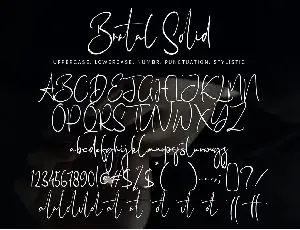 Brutal Solid
UPPERCASE. LOWERCASE. NUMBR. PUNCTUATION. STYLISTIC
ABCDEFGHIJKLMN
OPQRSTUVWXYZ
abcdefghijklmnopqrstuvwxyz
1234567890!@#$/$*( )---;[]?/